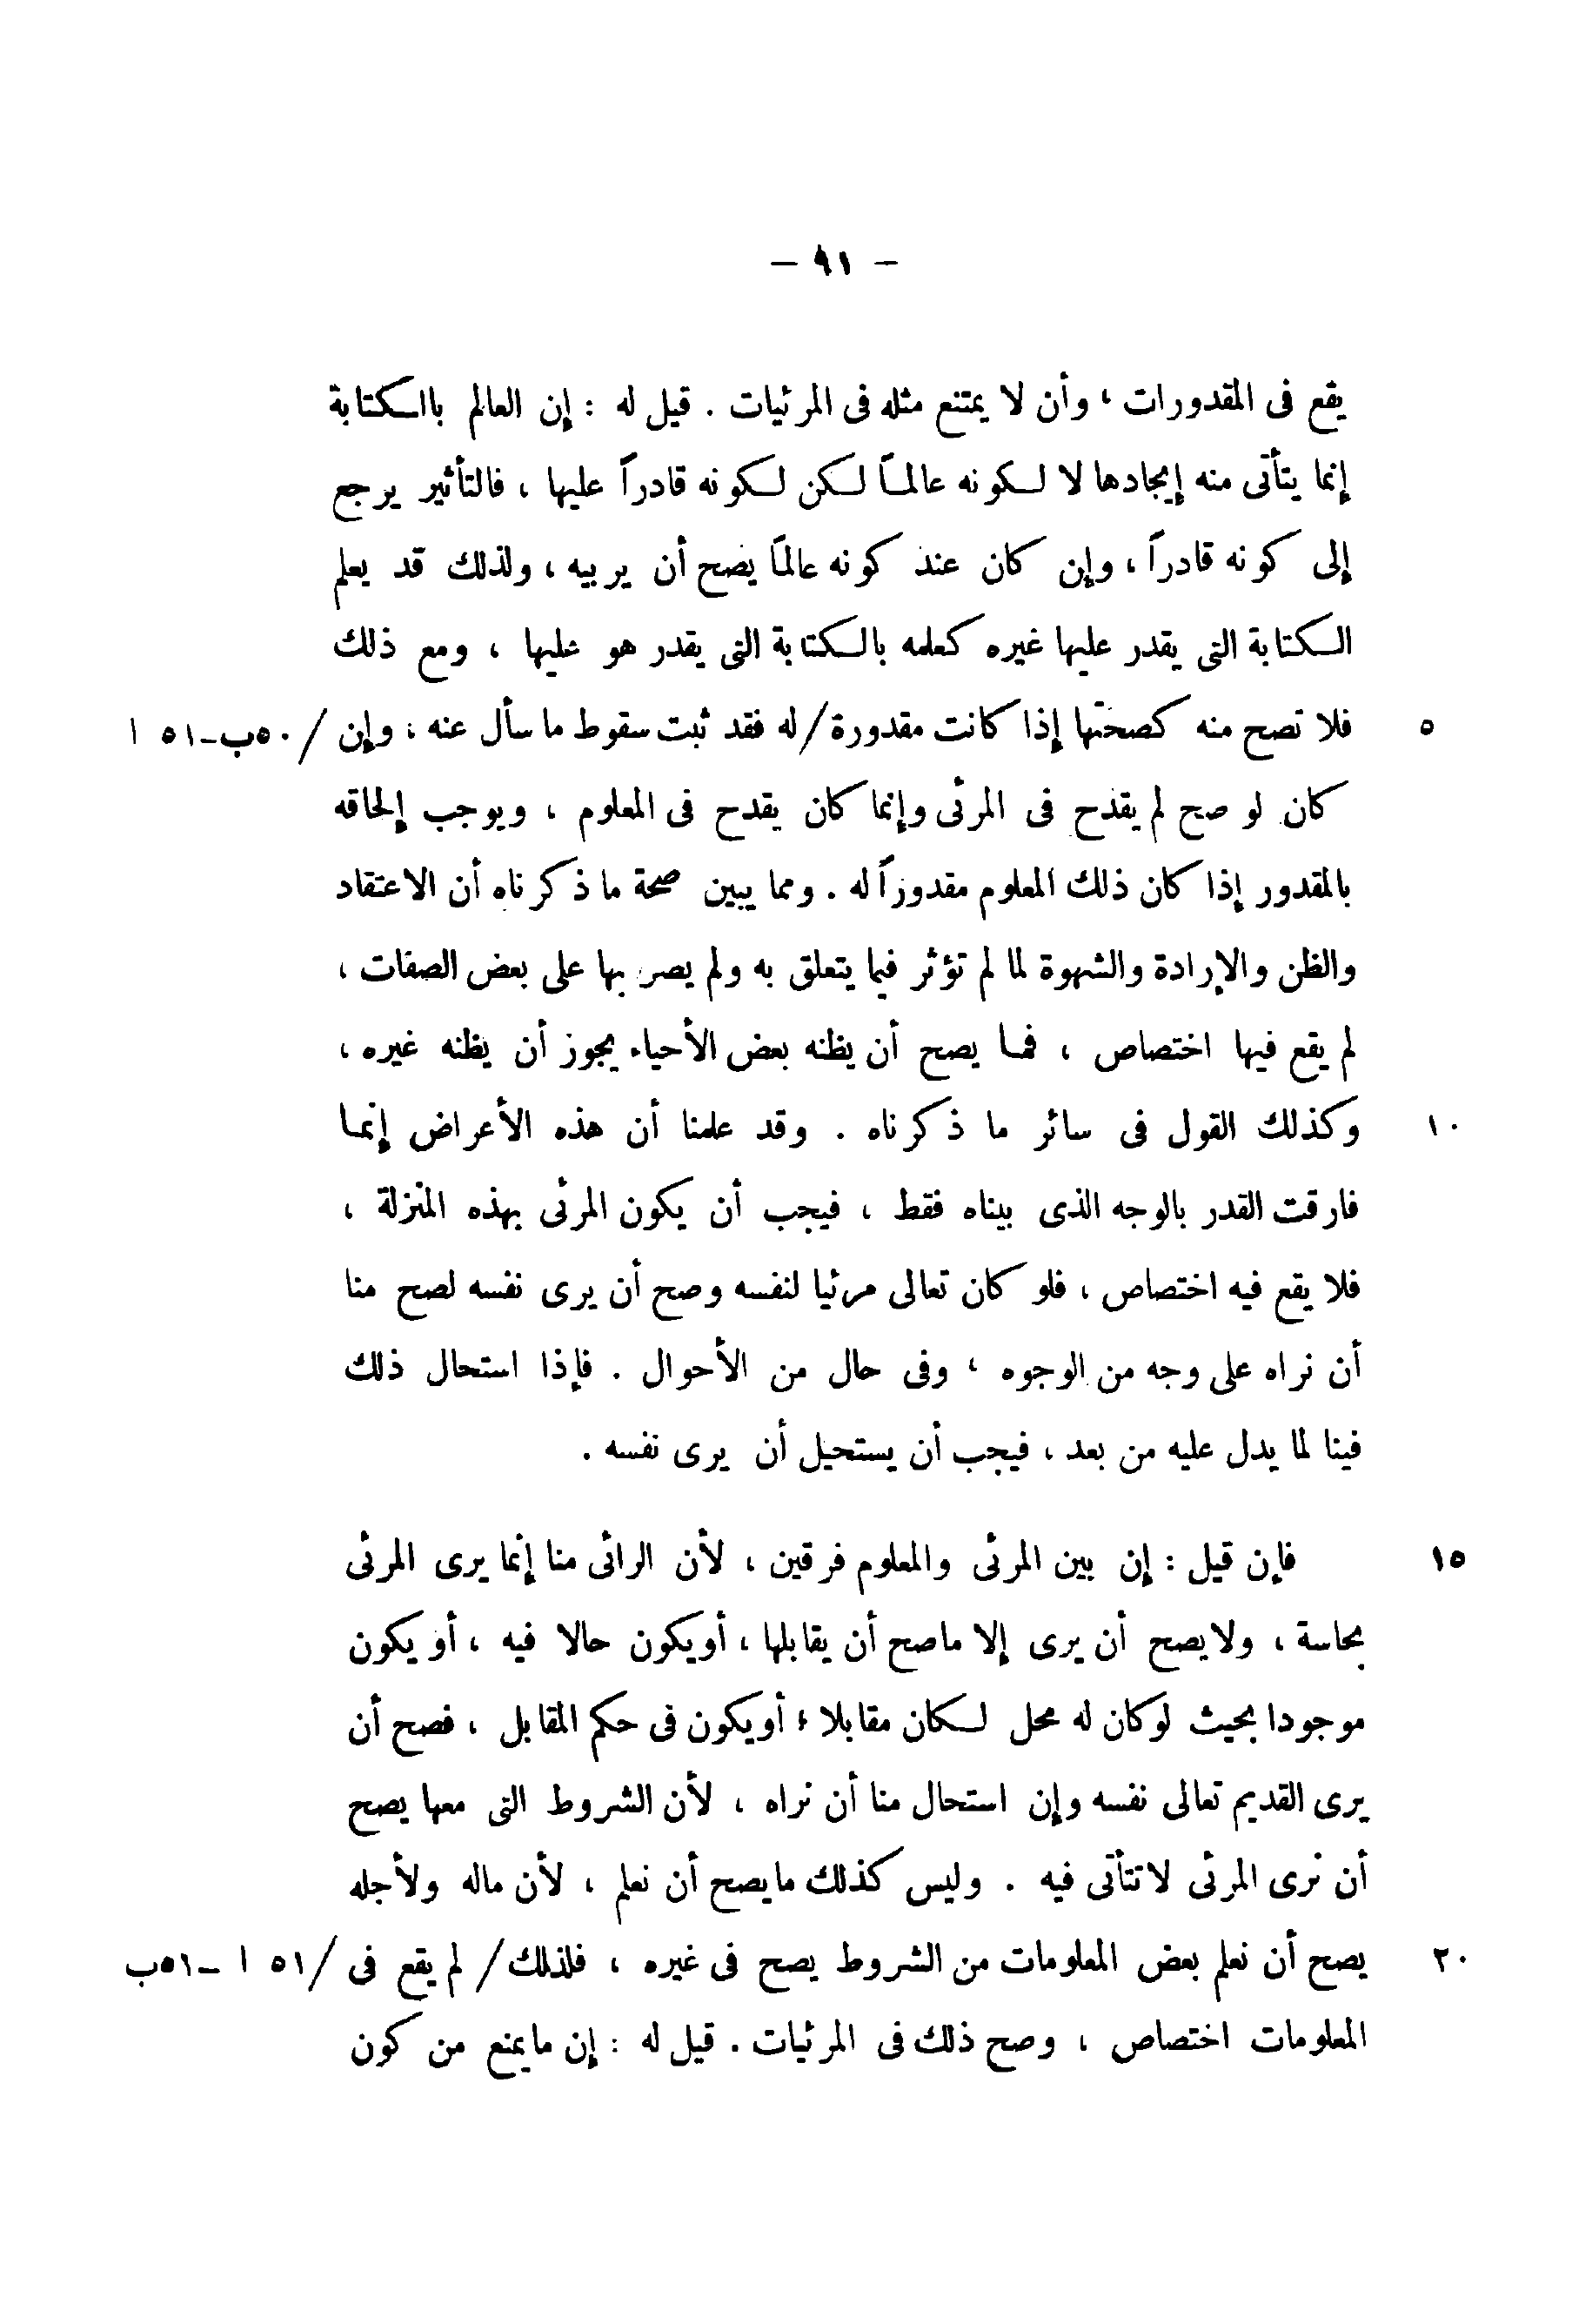 – ٩١ –
يقع فى المقدورات ، وأن لا يمتنع مثله فى المرئيات . قيل له : إن العالم بالكتابة
إنما يتأتى منه إيجادها لا لكونه عالماً لكن لكونه قادراً عليها ، فالتأثير يرجع
إلى كونه قادراً ، وإن كان عند كونه عالماً يصح أن يريبه ، ولذلك قد يعلم
الكتابة التى يقدر عليها غيره كعلمه بالكتابة التى يقدر هو عليها ، ومع ذلك
٥ فلا تصح منه كصحتها إذا كانت مقدورة / له فقد ثبت سقوط ما سأل عنه ، وإن / ٥٠ب-٥١ ا
كان لو صح لم يقدح فى المرئى وإنما كان يقدح فى المعلوم ، ويوجب إلحاقه
بالمقدور إذا كان ذلك المعلوم مقدوراً له . ومما يبين صحة ما ذكرناه أن الاعتقاد
والظن والإرادة والشهوة لما لم تؤثر فيما يتعلق به ولم يصر بها على بعض الصفات ،
لم يقع فيها اختصاص ، فما يصح أن يظنه بعض الأحياء يجوز أن يظنه غيره ،
١٠ وكذلك القول فى سائر ما ذكرناه . وقد علمنا أن هذه الأعراض إنما
فارقت القدر بالوجه الذى بيناه فقط ، فيجب أن يكون المرئى بهذه المنزلة ،
فلا يقع فيه اختصاص ، فلو كان تعالى مرئيا لنفسه وصح أن يرى نفسه لصح منا
أن نراه على وجه من الوجوه ، وفى حال من الأحوال . فإذا استحال ذلك
فينا لما يدل عليه من بعد ، فيجب أن يستحيل أن يرى نفسه .
١٥ فإن قيل : إن بين المرئى والمعلوم فرقين ، لأن الرائى منا إنما يرى المرئى
بحاسة ، ولا يصح أن يرى إلا ماصح أن يقابلها ، أويكون حالا فيه ، أو يكون
موجودا بحيث لوكان له محل لكان مقابلا ، أويكون فى حكم المقابل ، فصح أن
يرى القديم تعالى نفسه وإن استحال منا أن نراه ، لأن الشروط التى معها يصح
أن نرى المرئى لاتتأتى فيه . وليس كذلك مايصح أن نعلم ، لأن ماله ولأجله
٢٠ يصح أن نعلم بعض المعلومات من الشروط يصح فى غيره ، فلذلك / لم يقع فى / ٥١ ا -٥١ب
المعلومات اختصاص ، وصح ذلك فى المرئيات . قيل له : إن مايمنع من كون